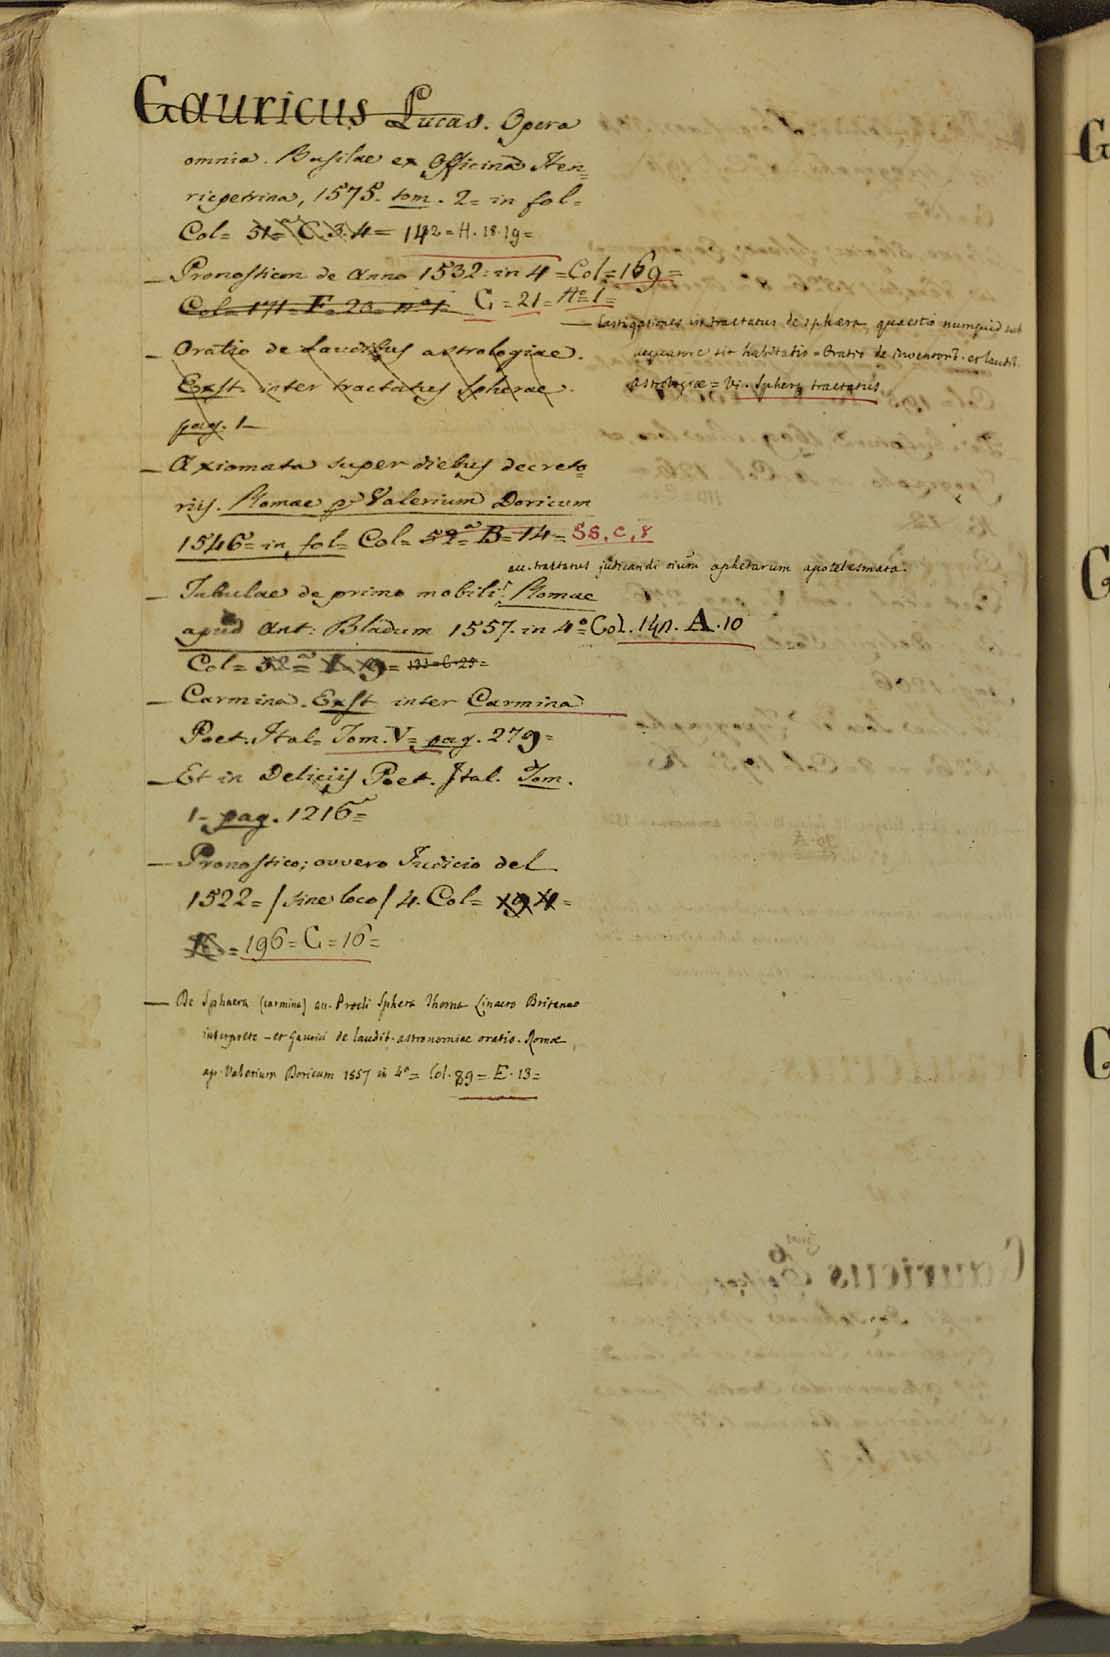 Gauricus Lucas. Opera
omnia. Basilae ex Officina Hen=
ricpetrina, 1575. tom. 2= in fol=
Col= 51= C. 3. 4= 142= H. 18. 19=
— Pronosticon de Anno 1532= in 4=Col=169=
Col= 171= F= 20= nº 1= G = 21= Nº 1=
— Castigationes in tractatus de sphæra, quæstio numquid sub
æquatore sit habitatio = Oratio de inventorib. et laudib.
Astrologiæ = V. Spheræ tractatus
— Oratio de Laudibus astrologiae.
Exst. inter tractatus Spherae.
pag. 1—
— Axiomata super diebus decreto=
riis. Romae p. Valerium Doricum
1546= in fol= Col= 52=a B=14= SS. C. 8
acc. tractatus judicandi oium aphetarum apotelesmata.
— Tabulae de primo mobili. Romae
apud Ant: Bladum 1557. in 4º= Col. 140. A. 10
Col= 52=a 19= 133=C=25=
— Carmina. Exst inter Carmina
Poet. Ital= Tom. V= pag. 279=
— Et in Deliciis Poet. Ital. Tom.
1- pag. 1216=
— Pronostico; ovvero Iudicio del
1522= / sine loco / 4. Col= 194=
K = 196= C = 16=
— De Sphaera (carmina) acc. Procli Sphera Thoma Linacro Britanno
interprete – et Gaurici de laudib. astronomiae oratio. Romæ
ap. Valerium Doricum 1557 in 4º= Col. 89= E. 13=